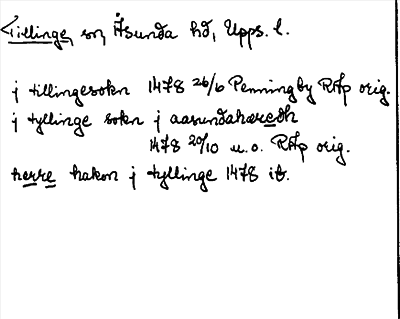 Tillinge, sn, Åsunda hd, Upps. l.
j tillingesokn 1478 26/6 Penningby RAp orig.
j tyllinge sokn j aasundahæredh
1478 20/10 u.o. RAp orig.
herre hakon j tyllinge 1478 ib.